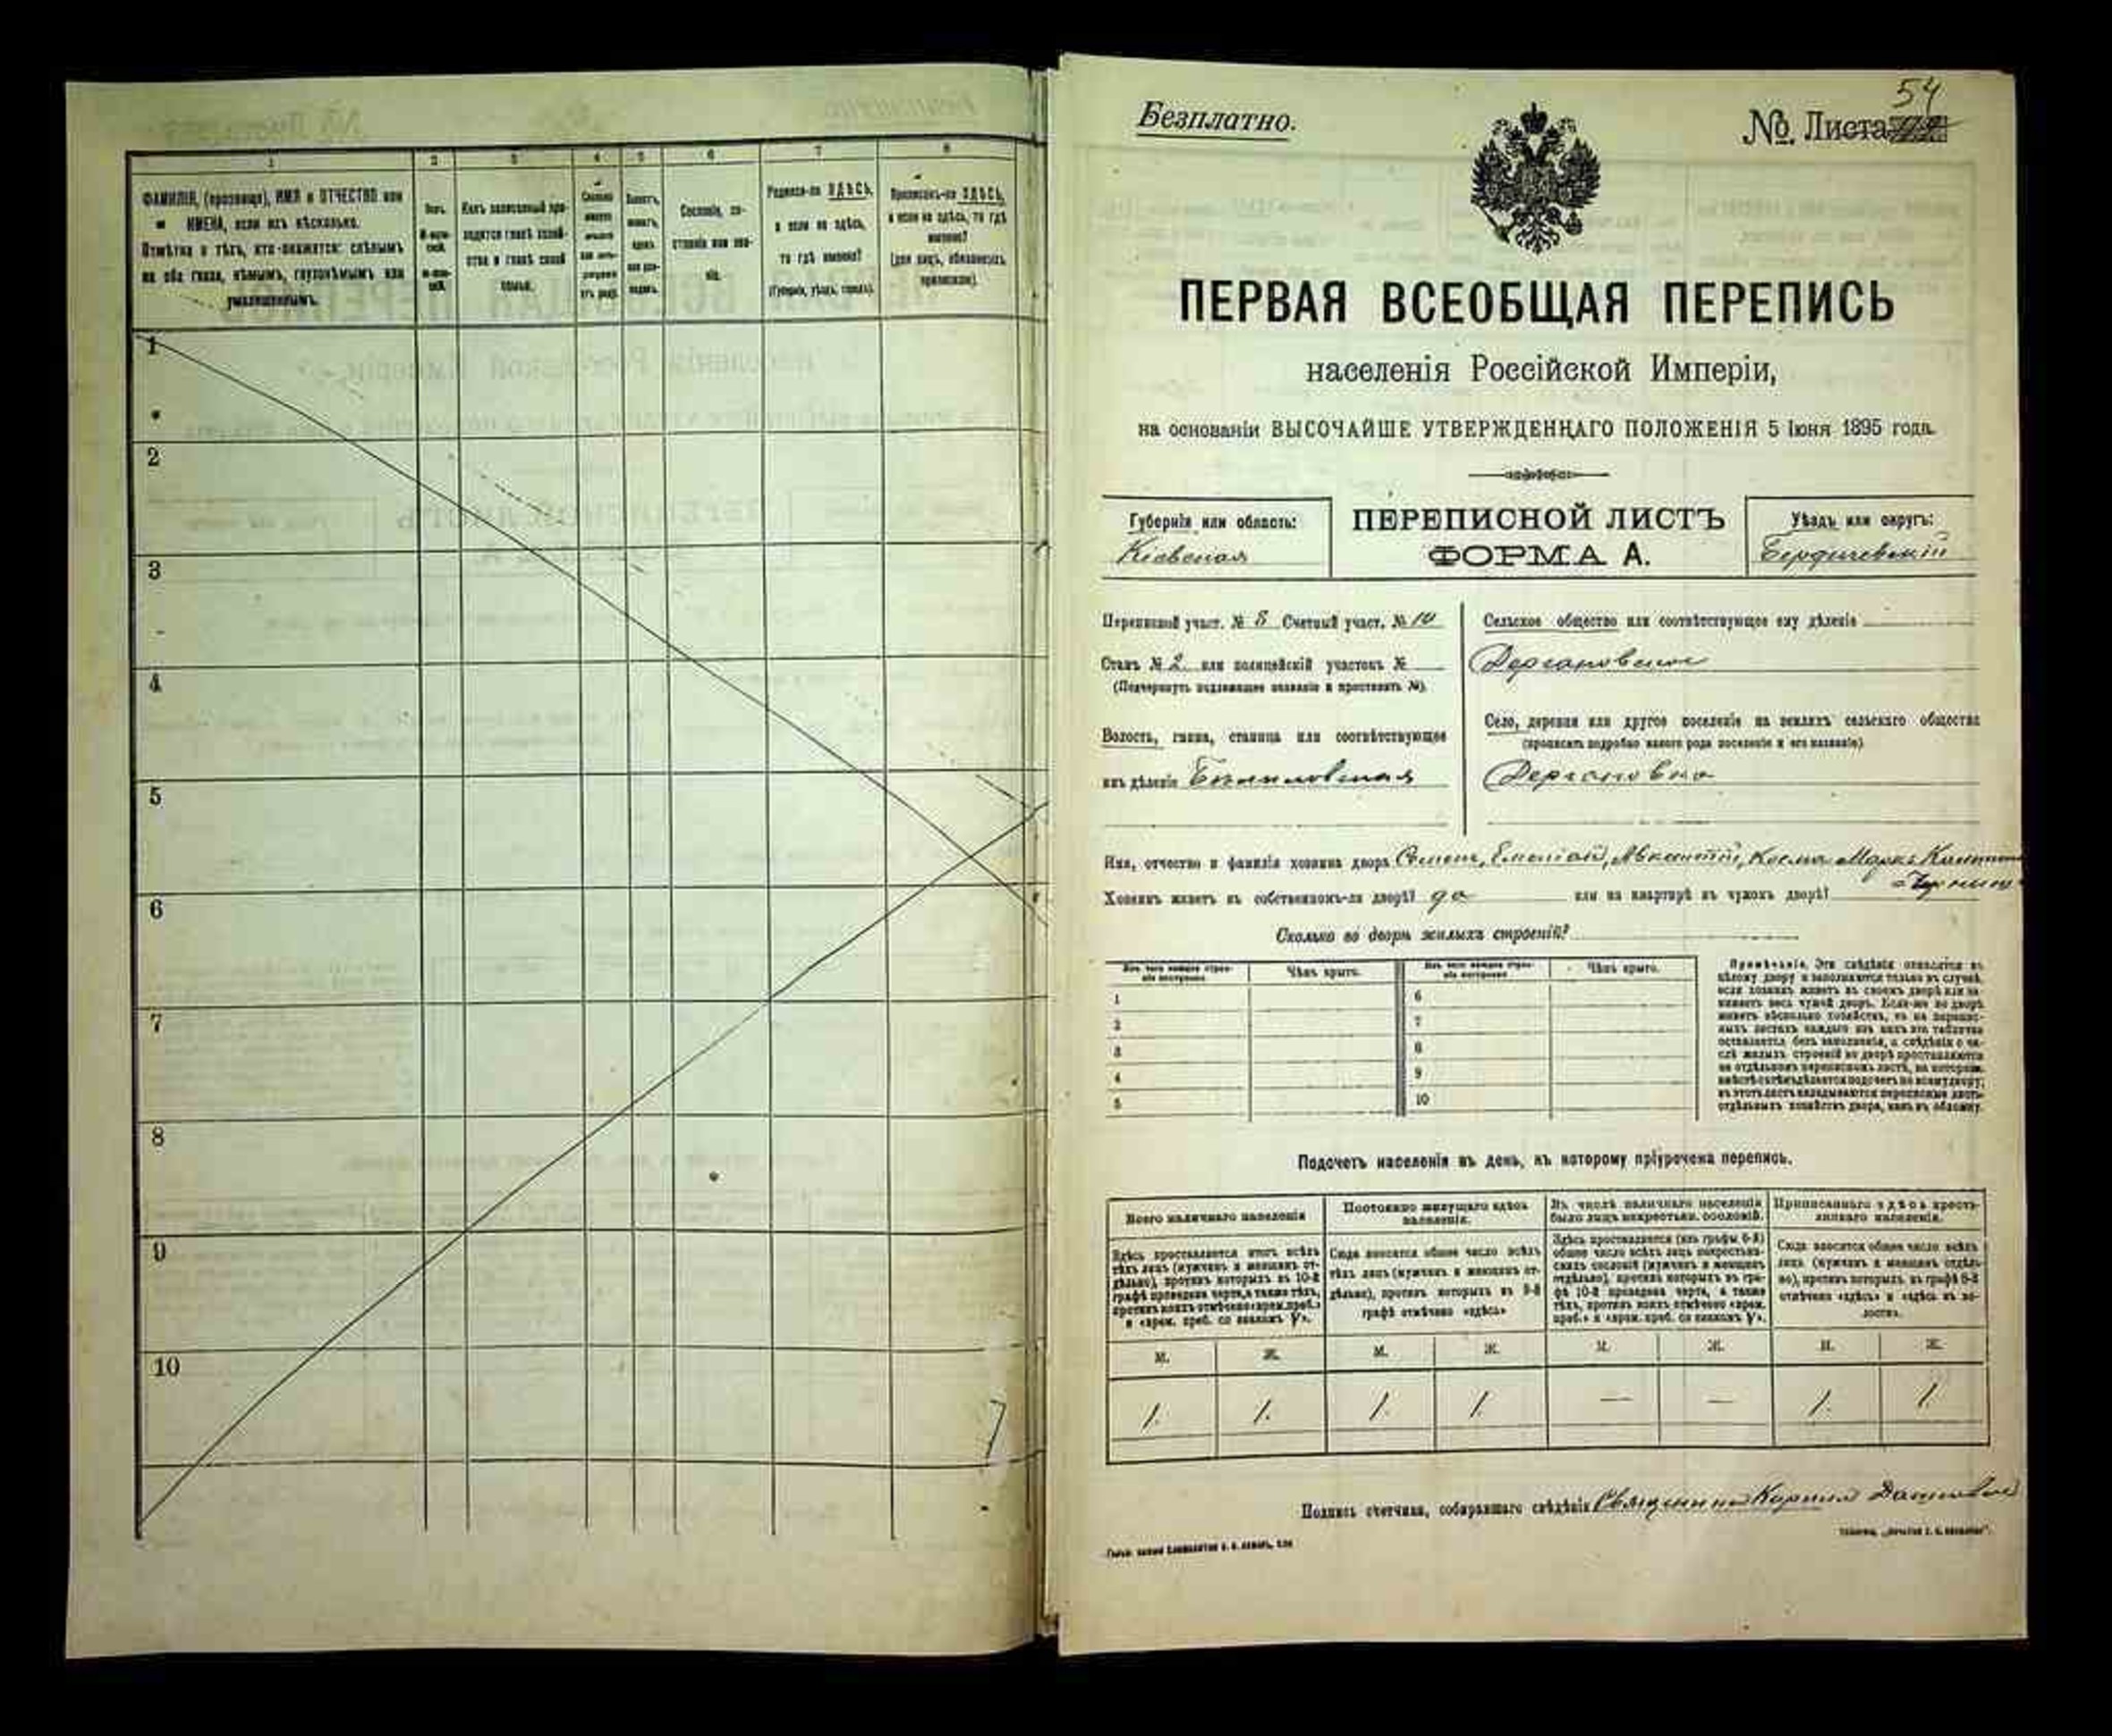 1 2 3 4 5 6 7 8
ФАМИЛІЯ, (прозвище), ИМЯ и ОТЧЕСТВО или
ИМЕНА, если ихъ нѣсколько.
Отмѣтка о тѣхъ, кто окажется: слѣпымъ
на оба глаза, нѣмымъ, глухонѣмымъ или
умалишеннымъ.
Полъ.
Какъ записанный при-
ходится главѣ хозяй-
ства и главѣ своей
семьи.
Сословіе, со-
стояніе или зва-
ніе.
Родился-ли ЗДѢСЬ,
а если не здѣсь,
то гдѣ именно?
(Губернія, уѣздъ, городъ).
Приписанъ-ли ЗДѢСЬ,
а если не здѣсь, то гдѣ
именно?
(для лицъ, обязанныхъ
припискою).
1
2
3
4
5
6
7
8
9
10
54
Безплатно.
№. Листа
ПЕРВАЯ ВСЕОБЩАЯ ПЕРЕПИСЬ
населенія Россійской Имперіи,
на основаніи ВЫСОЧАЙШЕ УТВЕРЖДЕННАГО ПОЛОЖЕНІЯ 5 Іюня 1895 года.
Губернія или область:
Кіевская
ПЕРЕПИСНОЙ ЛИСТЪ
ФОРМА А.
Уѣздъ или округъ:
Бердичевскій
Переписной участ. № 8 Счетный участ. № 10
Станъ № 2 или полицейскій участокъ №
(Подчеркнуть надлежащее названіе и проставить №).
Волость, гмина, станица или соотвѣтствующее
имъ дѣленіе Бѣлиловская
Сельское общество или соотвѣтствующее ему дѣленіе
Дергановское
Село, деревня или другое поселеніе на земляхъ сельскаго общества
(прописать подробно какого рода поселеніе и его названіе)
Дергановка
Имя, отчество и фамилія хозяина двора Семенъ, Емеліан, Авксентій, Косма Маркъ
Хозяинъ живетъ въ собственномъ-ли дворѣ? да или на квартирѣ въ чужомъ дворѣ?
Сколько во дворѣ жилыхъ строеній?
Изъ чего каждое строе-
ніе построено Чѣмъ крыто. Изъ чего каждое строе-
ніе построено Чѣмъ крыто.
1 6
2 7
3 8
4 9
5 10
Примѣчаніе. Эти свѣдѣнія относятся къ
цѣлому двору и заполняются только въ случаѣ,
если хозяинъ живетъ въ своемъ дворѣ или за-
нимаетъ весь чужой дворъ. Если-же во дворѣ
живетъ нѣсколько хозяйствъ, то на перепис-
ныхъ листахъ каждаго изъ нихъ эта табличка
оставляется безъ заполненія, а свѣдѣнія о чи-
слѣ жилыхъ строеній во дворѣ проставляются
на отдѣльномъ переписномъ листѣ, на которомъ
вмѣстѣ съ тѣмъ дѣлается подсчетъ по всему двору;
въ этотъ листъ вкладываются переписные листы
отдѣльныхъ хозяйствъ двора, какъ въ обложку.
Подсчетъ населенія въ день, къ которому пріурочена перепись.
Всего наличнаго населенія
Здѣсь проставляется итогъ всѣхъ
тѣхъ лицъ (мужчинъ и женщинъ от-
дѣльно), противъ которыхъ въ 10-й
графѣ проведена черта, а также тѣхъ,
противъ коихъ отмѣчено «врем. преб.»
и «врем. преб. со знакомъ V».
Постоянно живущаго здѣсь
населенія.
Сюда вносится общее число всѣхъ
тѣхъ лицъ (мужчинъ и женщинъ от-
дѣльно), противъ которыхъ въ 9-й
графѣ отмѣчено «здѣсь»
Въ числѣ наличнаго населенія
было лицъ некрестьян. сословій.
Здѣсь проставляется (изъ графы 6-й)
общее число всѣхъ лицъ некрестьян-
скихъ сословій (мужчинъ и женщинъ
отдѣльно), противъ которыхъ въ гра-
фѣ 10-й проведена черта, а также
тѣхъ, противъ коихъ отмѣчено «врем.
преб.» и «врем. преб. со знакомъ V».
Приписаннаго здѣсь кресть-
янскаго населенія.
Сюда вносится общее число всѣхъ
лицъ (мужчинъ и женщинъ отдѣль-
но), противъ которыхъ въ графѣ 8-й
отмѣчено «здѣсь» и «здѣсь въ во-
лости».
М. Ж. М. Ж. М. Ж. М. Ж.
1. 1. 1. 1. — — 1. 1.
Подпись счетчика, собиравшаго свѣдѣнія Священникъ Кириллъ